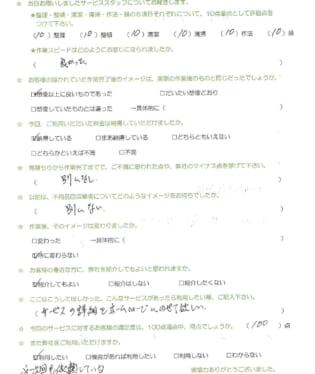 ※ 当日お伺いしましたサービススタッフについてお聞きします。
★整理・整頓・清潔・清掃・作法・躾の6項目それぞれについて、10点満点として評価点をつけて下さい。
(10)整理 (10)整頓 (10)清潔 (10)清掃 (10)作法 (10)躾
★作業スピードなどどのようにお感じになられましたか。
( 良かった )
※ お客様の描かれていた作業完了後のイメージは、実際の作業後のものと同じだったでしょうか。
☑想像以上に良いものであった □だいたい想像どおり
□想像していたものとは違った →具体的に( )
※ 今回、ご利用いただいた料金は納得していただけましたか。
☑納得している □まあ納得している □どちらともいえない
□どちらかといえば不満 □不満
※ 見積もりから作業完了までで、ご不満に思われた点や、弊社のマイナス点を挙げて下さい。
( 別になし )
※ 以前は、不用品回収業者についてどのようなイメージをお持ちでしたか。
( 別にない )
※ 作業後、そのイメージは変わりましたか。
□変わった →具体的に( )
☑特に変わらない
※ お客様の身近な方に、弊社を紹介してもよいと思われますか。
☑紹介してもよい □紹介はしない □紹介したくない
※ ここはこうして欲しかった、こんなサービスがあったら利用したい等、ご記入下さい。
( サービスの詳細をホームページにのせて欲しい )
※ 今回のサービスに対するお客様の満足度は、100点満点中、何点でしょうか。 (100)点
※ また弊社をご利用いただけますか。
☑利用したい □機会があれば利用したい □利用しない □わからない
ご協力ありがとうございました。